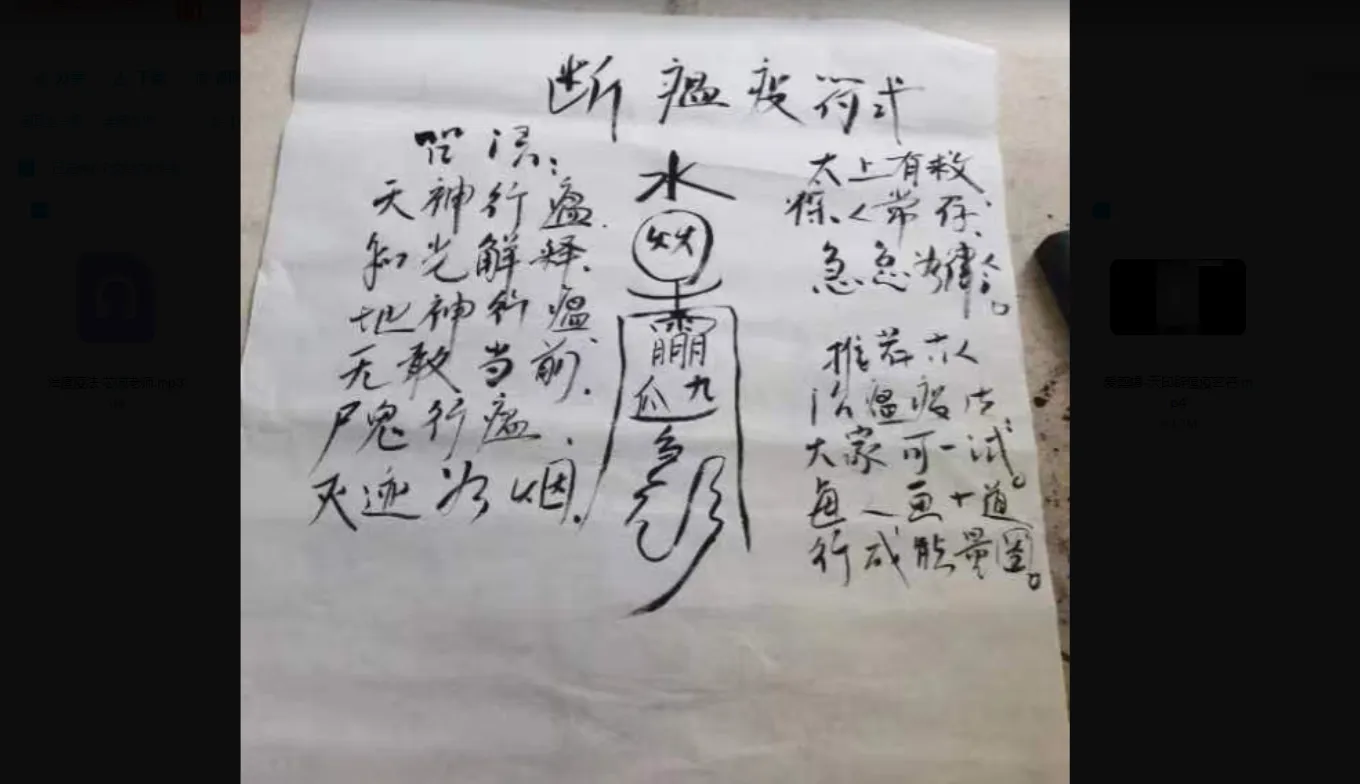 断瘟疫符式
咒语:
天神行瘟.
知光解释.
地神行瘟.
无敢当前.
尸鬼行瘟.
灭迹为烟.
水
火火
九
太上有敕
人常存.
急急如律令。
推荐六人
治瘟疫法
大家可一试。
每人画十道
行成能量圈。